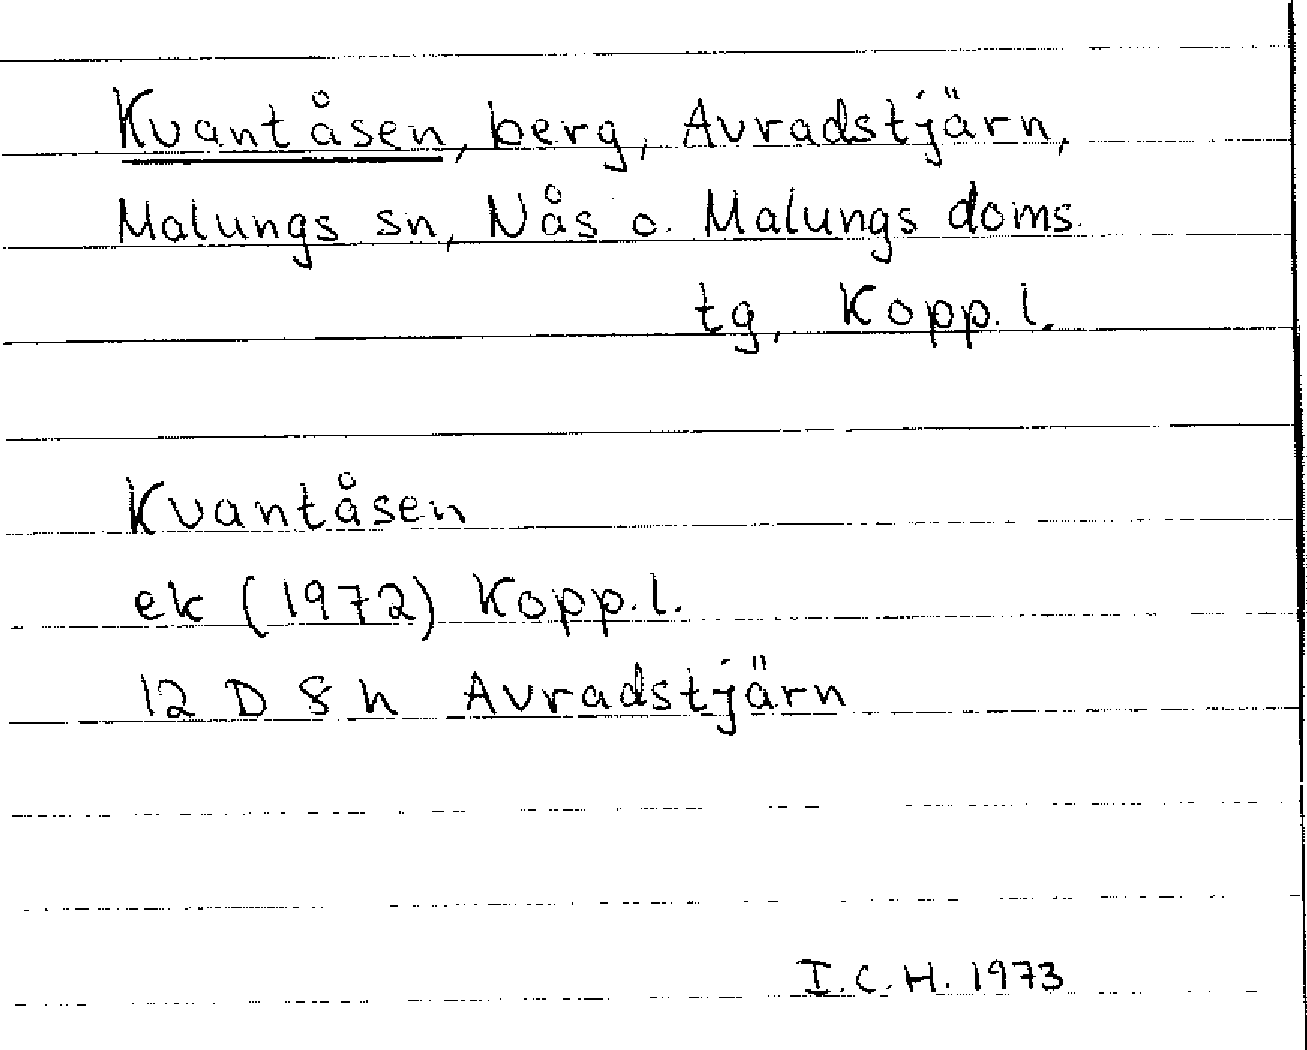 Kvantåsen, berg, Avradstjärn,
Malungs sn, Nås o. Malungs doms.
tg, Kopp. l.
Kvantåsen
ek (1972) Kopp. l.
12 D 8 h Avradstjärn
I. C. H. 1973